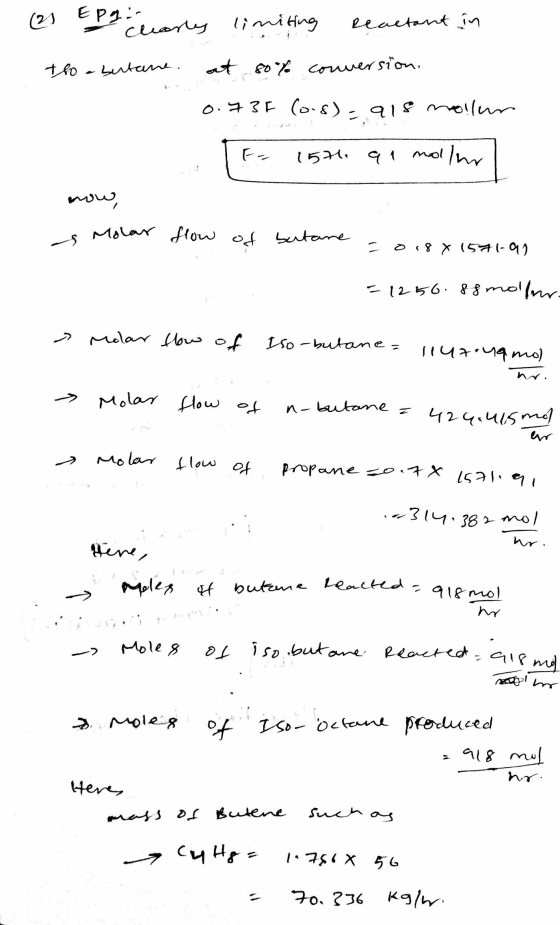 (2) EP1:- Clearly limiting reactant in
Iso-butane. at 80% conversion.
0.73F (0.8) = 918 mol/hr
F = 1571.91 mol/hr
now,
→ Molar flow of butane = 0.8 X 1571.91
= 1256.88 mol/hr.
→ Molar flow of Iso-butane = 1147.49 mol/hr.
→ Molar flow of n-butane = 424.415 mol/hr
→ Molar flow of propane = 0.7 X 1571.91
= 314.382 mol/hr.
Here,
→ Moles of butane reacted = 918 mol/hr
→ Moles of iso butane reacted = 918 mol/hr
→ Moles of Iso-octane produced
= 918 mol/hr.
Here,
mass of Butene such as
→ C4H8 = 1.256 X 56
= 70.336 kg/hr.